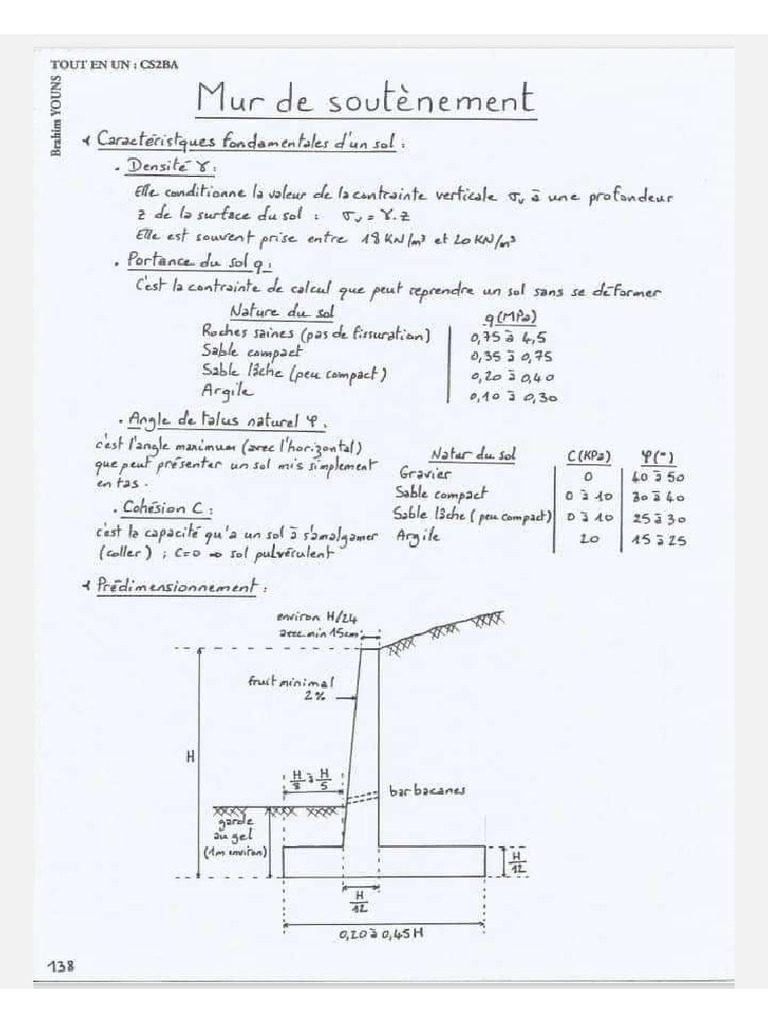 TOUT EN UN : CS2BA
Brahim YOUNS
Mur de soutènement
Caractéristques fondamentales d'un sol :
. Densité γ :
Elle conditionne la valeur de la contrainte verticale σv à une profondeur
z de la surface du sol : σv = γ.z
Elle est souvent prise entre 18 KN/m³ et 20 KN/m³
. Portance du sol q :
C'est la contrainte de calcul que peut reprendre un sol sans se déformer
Nature du sol q(MPa)
Roches saines (pas de fissuration) 0,75 à 4,5
Sable compact 0,35 à 0,75
Sable lâche (peu compact) 0,20 à 0,40
Argile 0,10 à 0,30
. Angle de talus naturel φ.
c'est l'angle maximum (avec l'horizontal)
que peut présenter un sol mis simplement
en tas.
. Cohésion C :
c'est la capacité qu'a un sol à s'amalgamer
(coller) ; C=0 ⇒ sol pulvérulent
Natur du sol C(KPa) φ(°)
Gravier 0 40 à 50
Sable compact 0 à 10 30 à 40
Sable lâche (peu compact) 0 à 10 25 à 30
Argile 20 15 à 25
Prédimensionnement :
environ H/24
avec min 15cm
fruit minimal
2%
H
H/8 à H/5
barbacanes
garde
au gel
(1m environ)
H/12
H/12
0,20 à 0,45 H
138